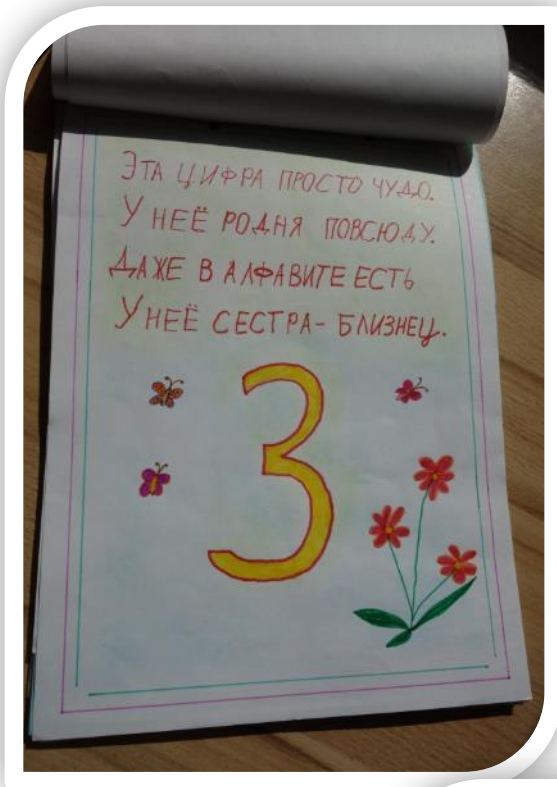 ЭТА ЦИФРА ПРОСТО ЧУДО.
У НЕЁ РОДНЯ ПОВСЮДУ.
ДАЖЕ В АЛФАВИТЕ ЕСТЬ
У НЕЁ СЕСТРА - БЛИЗНЕЦ.
3